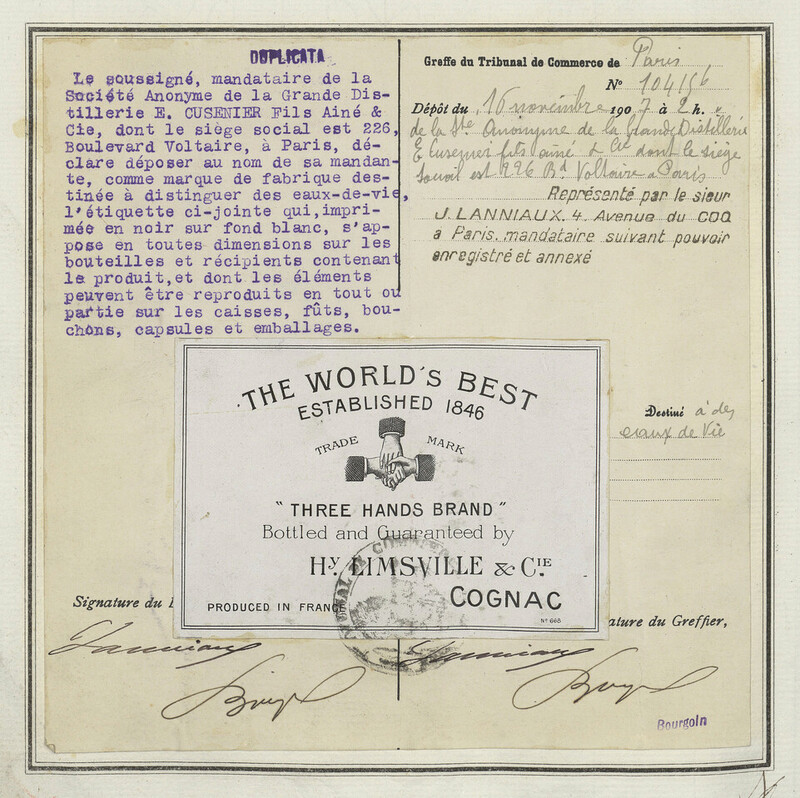 DUPLICATA
Le soussigné, mandataire de la
Société Anonyme de la Grande Dis-
tillerie E. CUSENIER Fils Ainé &
Cie, dont le siège social est 226,
Boulevard Voltaire, à Paris, dé-
clare déposer au nom de sa mandan-
te, comme marque de fabrique des-
tinée à distinguer des eaux-de-vie,
l'étiquette ci-jointe qui,impri-
mée en noir sur fond blanc, s'ap-
pose en toutes dimensions sur les
bouteilles et récipients contenant
le produit,et dont les éléments
peuvent être reproduits en tout ou
partie sur les caisses, fûts, bou-
chons, capsules et emballages.
Greffe du Tribunal de Commerce de Paris
N° 104156
Dépôt du 16 novembre 1907 à 2 h. "
de la Sté Anonyme de la Grande Distillerie
E Cusenier fils ainé & Cie dont le siège
social est 226 Bd Voltaire a Paris
Représenté par le sieur
J. LANNIAUX. 4. Avenue du COQ
a Paris. mandataire suivant pouvoir
enregistré et annexé
Destiné à des
eaux de Vie
THE WORLD'S BEST
ESTABLISHED 1846
TRADE MARK
"THREE HANDS BRAND"
Bottled and Guaranteed by
HY. LIMSVILLE & CIE
COGNAC
PRODUCED IN FRANCE
N° 668
Signature du
ature du Greffier,
Lanniaux
Lanniaux
Bourgoin